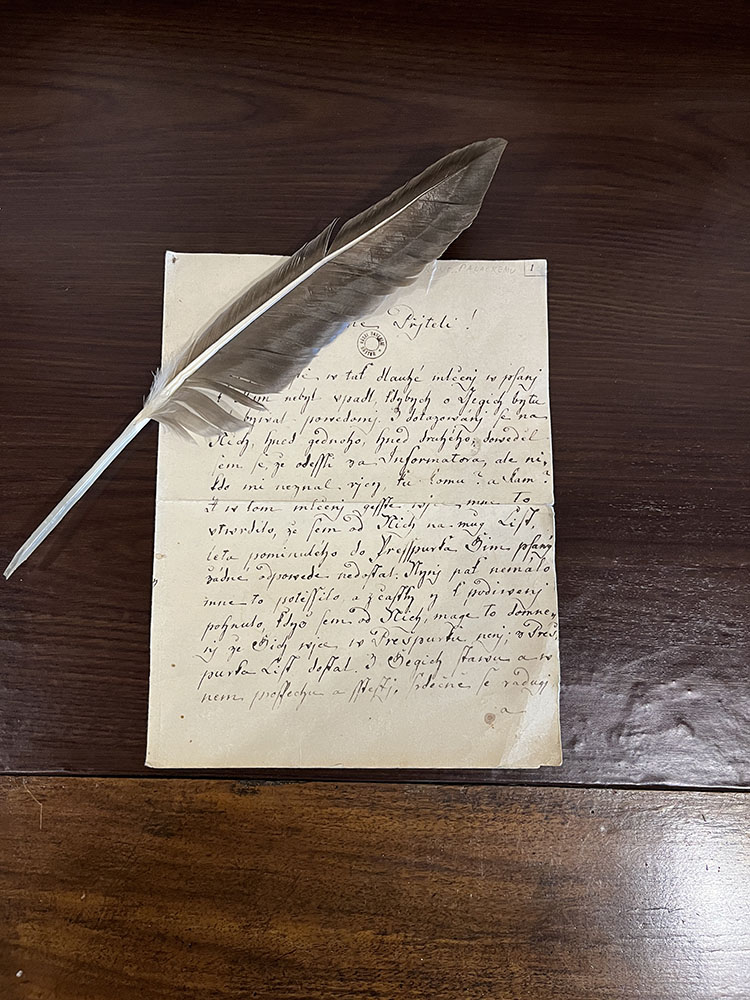 PALACKÉMU 1
Přjteli!
w tak dlauhé mlčenj w psanj
nebyl vpadl, kdybych o Gegich bytu
powědomj. z dotazowánj se na
Nich, hned gednoho, hned druhého, dowěděl
jsem se, že odessli za Informatora, ale ni,
kdo mi neznal řjcy, ku komu? a kam?
Z w tom mlčenj gesstě wjce mne to
vtwrdilo, že sem od Nich na mug List,
léta pominulého do Presspurku Gim psaný
žádné odpowědě nedostal. Nynj pak nemálo
mne to potěssilo a zčástky y k podiwenj
pohnulo, když sem od Nich, mage to domně,
nj že Gich wjce w Presspurku nenj, z Preš,
purku List dostal. Z Gegich stawu a w
nem prospěchu a sstěstj, srdečně se radugi
a